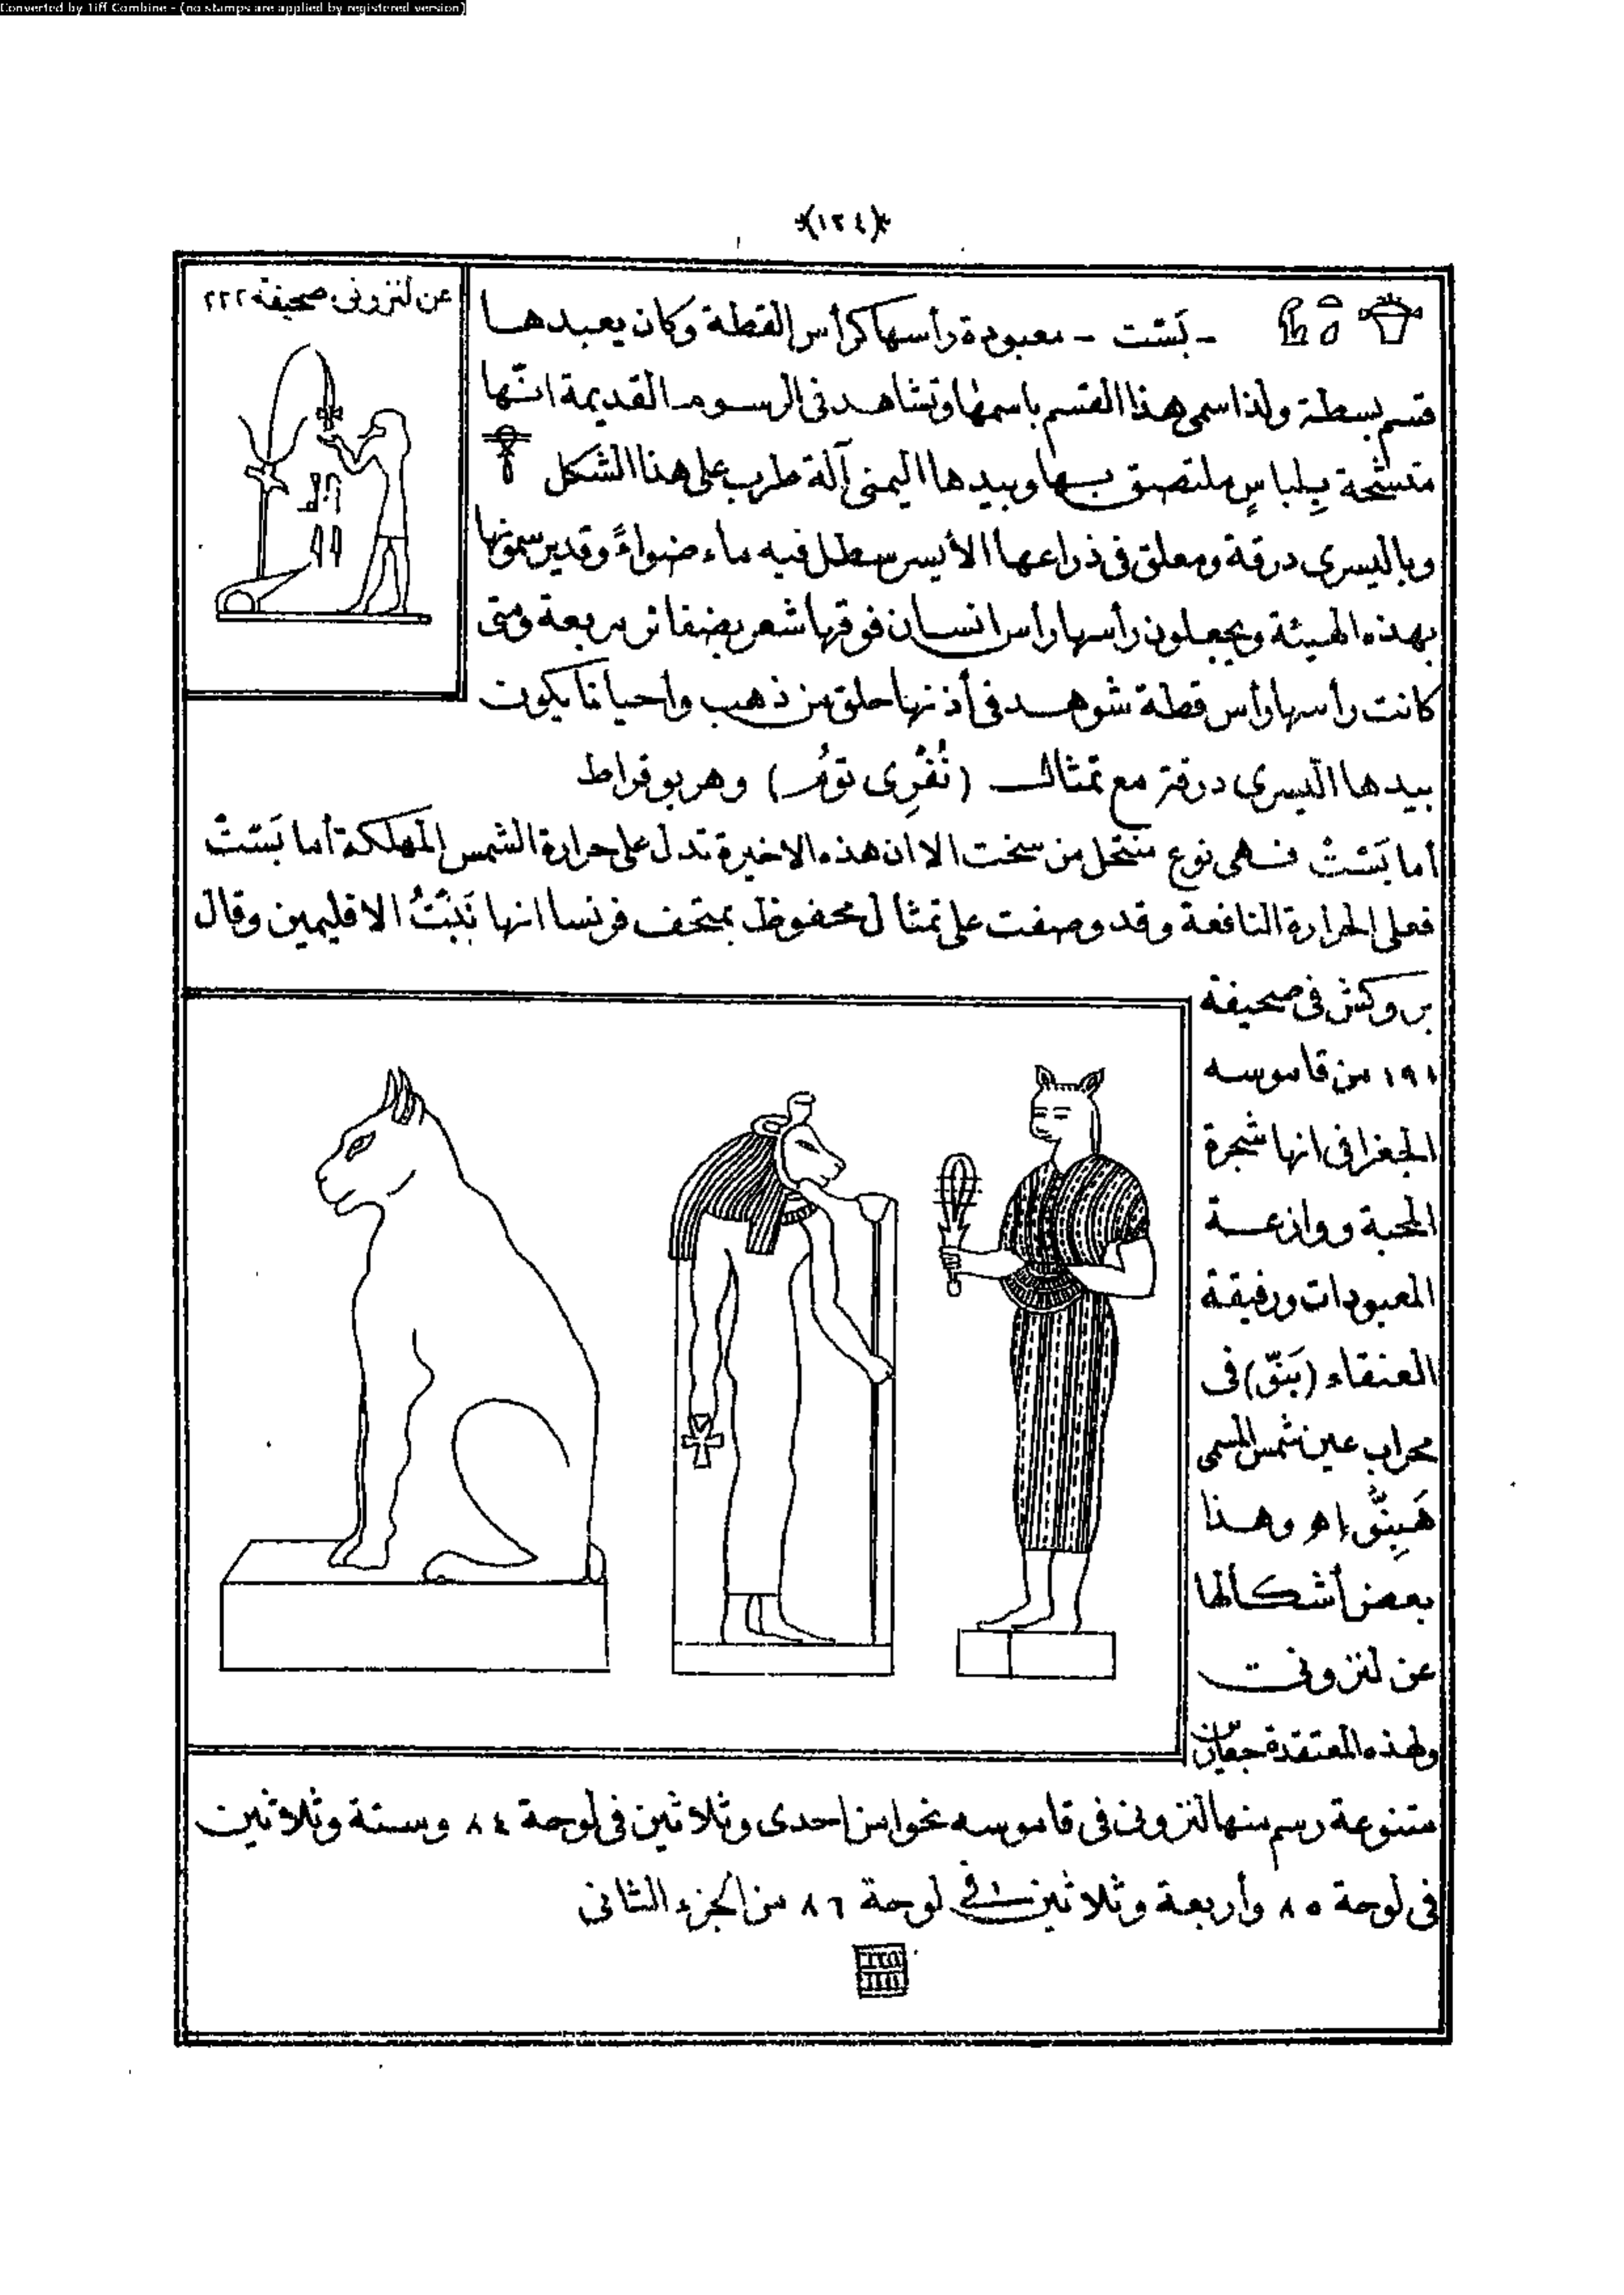 Converted by Tiff Combine - (no stamps are applied by registered version)
﴿١٢٤﴾
عن لنزونى صحيفة ٢٢٢
- بَسْت - معبودة رأسها كرأس القطة وكان يعبدها
قسم بسطة ولذا سمى هذا القسم باسمها وتشاهد فى الرسوم القديمة انّها
متشحة بلباسٍ ملتصق بها وبيدها اليمنى آلة طرب على هذا الشكل
وباليسرى درقة ومعلق فى ذراعها الأيسر سطل فيه ماء ضواءً وقد يرسمونها
بهذه الهيئة ويجعلون رأسها رأس انسان فوقها شعر بضفائر مربعة ومتى
كانت رأسها رأس قطة شوهد فى أذنها حلق من ذهب وأحيانا يكون
بيدها اليسرى درقة مع تمثال (نُفْرِى تومُ) وهربوقراط
أما بَسْتْ فهى نوع منتحل من سخت الا ان هذه الاخيرة تدل على حرارة الشمس المهلكة أما بَسْتْ
فعلى الحرارة النافعة وقد وصفت على تمثال محفوظ بمتحف فرنسا انها نَبْتْ الاقليمين وقال
بروكش فى صحيفة
١٩١ من قاموسه
الجغرافى انها شجرة
المحبة ووازعة
المعبودات ورفيقة
العنقاء (بَنّو) فى
محراب عين شمس المسمى
هَبِنّو اهـ وهذا
بعض أشكالها
عن لنزونى
ولهذه المعتقدة
متنوعة رسم منها لنزونى فى قاموسه نحوا من احدى وثلاثين فى لوحة ٨٤ وستة وثلاثين
فى لوحة ٨٥ وأربعة وثلاثين فى لوحة ٨٦ من الجزء الثانى